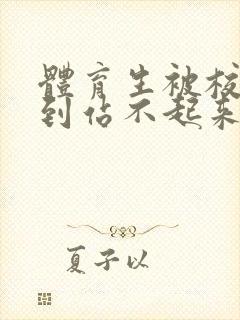 體育生被校
到佔不起來
夏子以